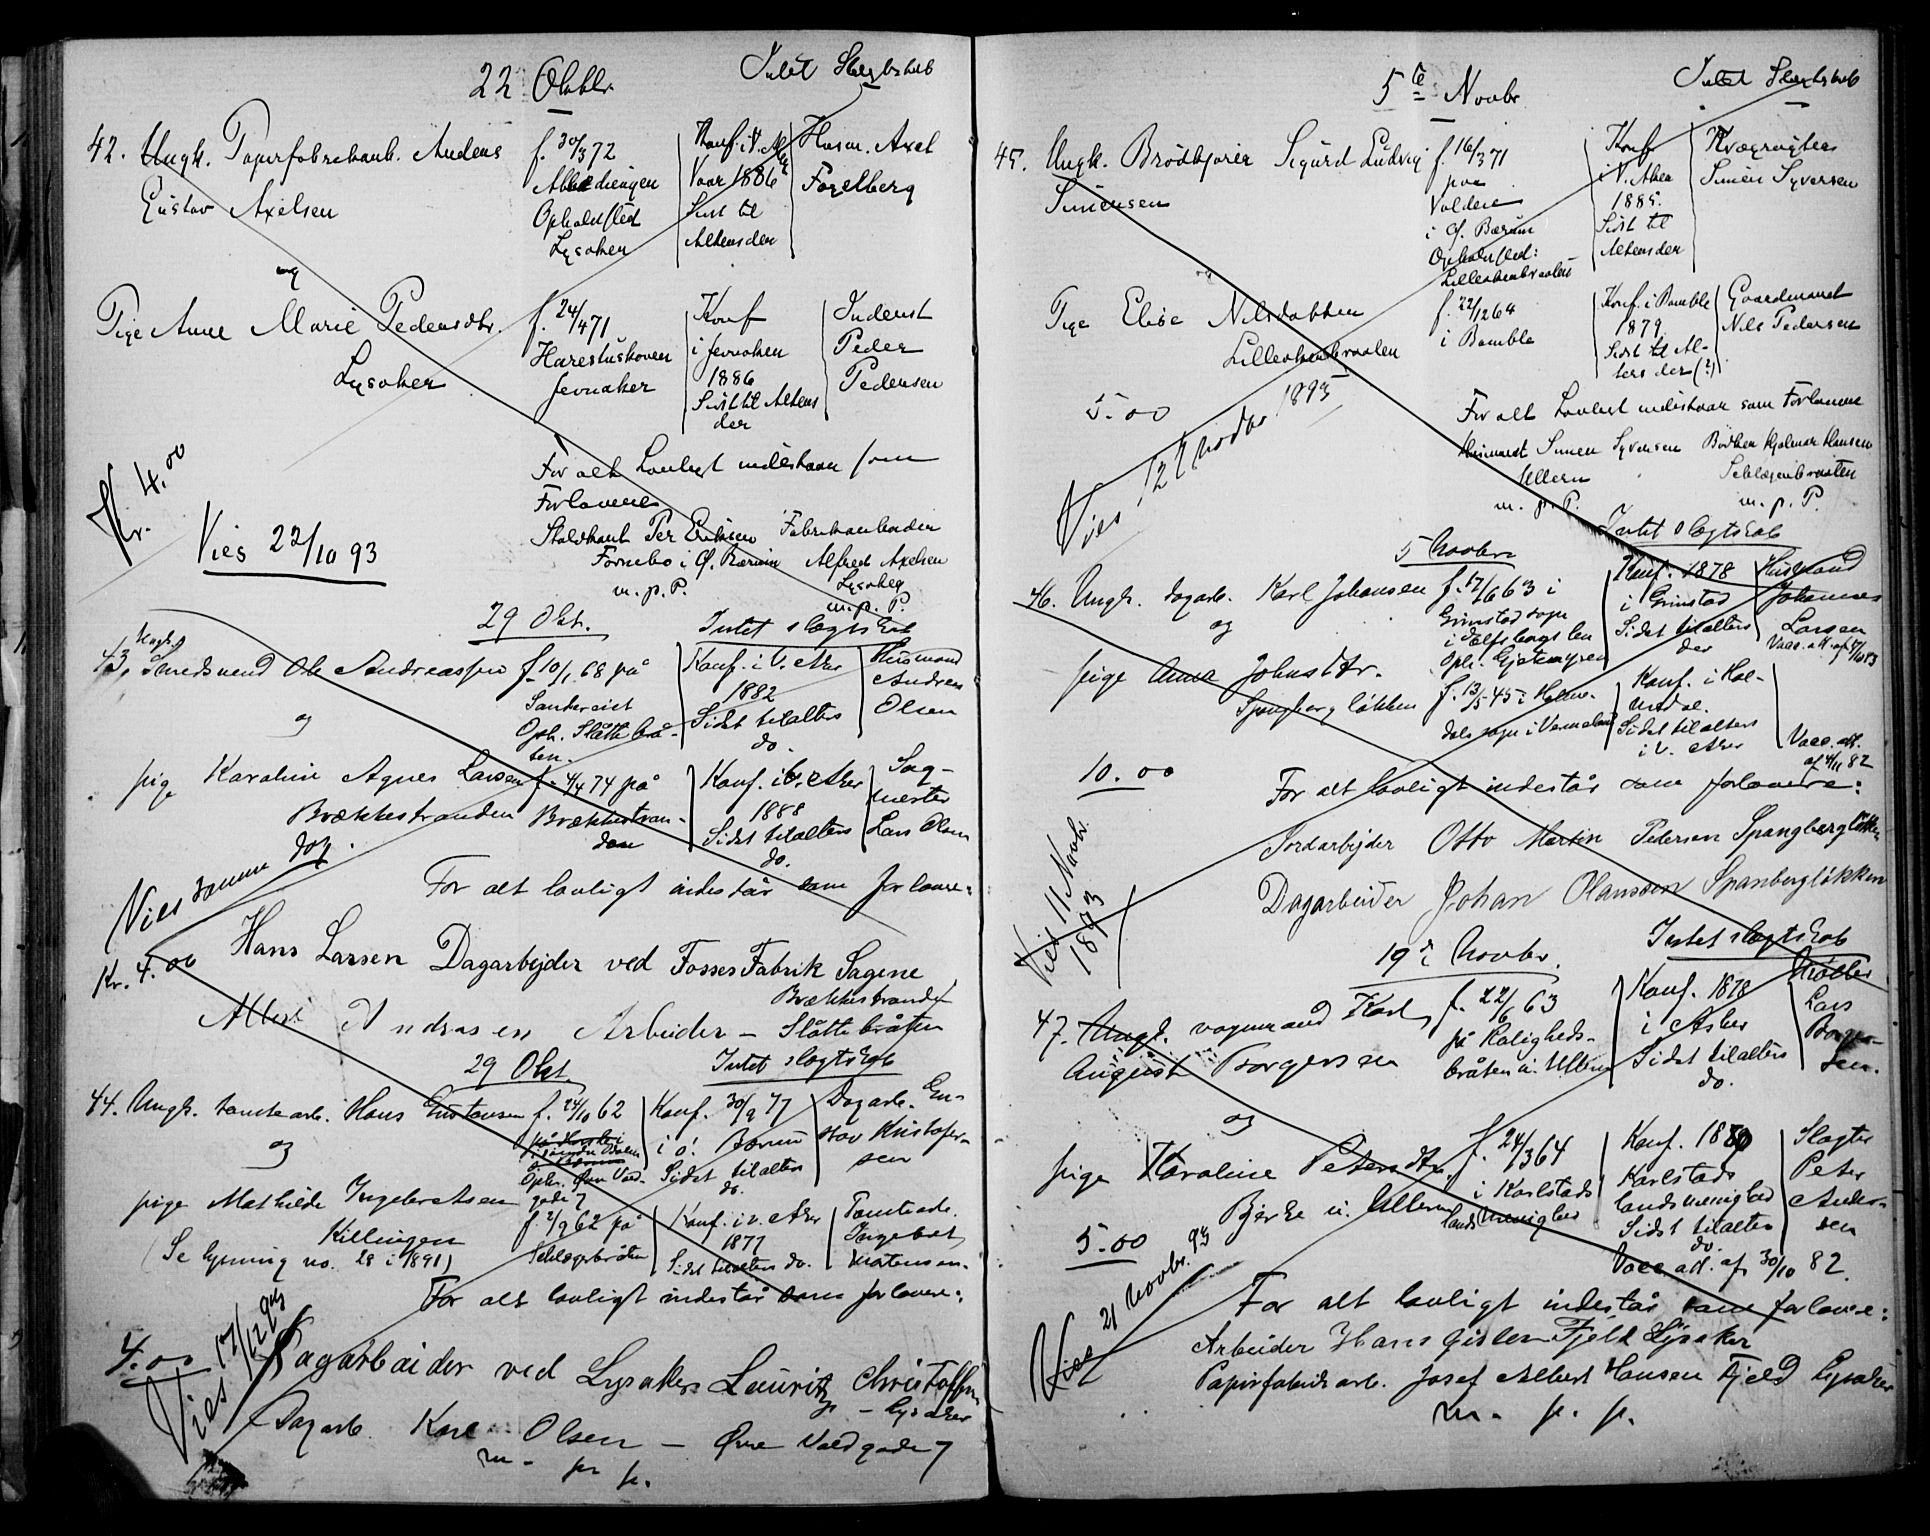 22 Oktbr. Intet Slægtskab
42. Ungk. Papirfabrikarb. Anders f. 30/3 72 Konf. i V. Aker Husm. Axel
Gustav Axelsen Vaar 1886 Fogelberg
Opholdssted Sidst til
Lysaker Altens der
og
Pige Anne Marie Pedersdtr. f. 24/4 71 Konf. Inderst
Lysaker Harestuskoven i Jevnaker Peder
Jevnaker 1886 Pedersen
Sidst til Altens
der
For alt Lovligt indestaar som
Forlovere
Kr. 4.00
Staldkarl Per Eriksen Fabrikarbeider
Vies 22/10 93
Fornebo i Ø. Bærum Alfred Axelsen
Lysaker
m. p. P. m. p. P.
29 Okt. Intet slægtskab
43. Ungk. Smedsvend Ole Andreassen f. 10/1 68 på Konf. i V. Aker Husmand
1882 Andreas
og Oph. Slåttebrå- Sidst tilalters Olsen
ten. do.
pige Karoline Agnes Larsen f. 4/4 74 på Konf. i V. Aker Sag-
Brækkestranden Brækkestran- 1888 mester
den Sidst tilalters Lars Olsen
do.
Vies samme dag.
For alt lovligt indestår som forlovere:
Kr. 4.00
Hans Larsen Dagarbejder ved Fosses Fabrik Sagene
Brækkestrand
Albert Andrasen Arbeider – Slåttebråten
29 Okt. Intet slægtskab
44. Ungk. tomtearb. Hans Gustavsen f. 24/10 62 Konf. 30/9 77 Dagarb. Gu-
og i Ø. Bærum stav Kristofer-
Oph. Øvre Vold- Sidst tilalters sen
gade 7 do.
pige Mathilde Ingebretsen f. 2/9 62 på Konf. i V. Aker Tomtearb.
Killingen 1877 Ingebret
(Se lysning no. 28 i 1891) Sidst tilalters do. Mortensen.
For alt lovligt indestår som forlovere:
4.00
Vies 17/12 93
Dagarbeider ved Lysaker Lauritz Christoffersen
– Lysaker
Dagarb. Karl Olsen – Øvre Voldgade 7
m. p. p.
5te Novbr Intet Slægtskab
45. Ungk. Brödkjører Sigurd Ludvig f. 16/3 71 Konf. Kvægrøgter
Simensen paa i V. Aker Simen Syversen
1885.
i Ø. Bærum Sidst til
Opholdssted: Altens der
Lilleakerbraaten
og
Pige Elise Nilsdatter f. 22/12 64 Konf. i Bamble Gaardmand
Lilleakerbraaten i Bamble 1879 Nils Pedersen
Sidst til Al-
ters der (?)
5.00
Vies 12te Novbr 1893
For alt Lovligt indestaar som Forlovere
Husmand Simen Syversen Bødker Hjalmar Hansen
Ullern
m. p. P. m. p. P.
5 Novbr Intet slægtskab
46. Ungk. dagarb. Karl Johansen f. 17/6 63 i Konf. 1878 Husmand
og Grinstad sogn i Grinstad Johannes
i Elfsborgs len Sidst tilalters Larsen
Oph. Gjetemyren der
pige Anna Johnsdtr. f. 13/5 45 i Holme- Konf. i Hol-
Spangbergløkken dals sogn i Vermeland medal.
Sidst tilalters
i V. Aker Vacc. att.
10.00
For alt lovligt indestår som forlovere:
Vies 11 Novbr. 1893
Jordarbejder Otto Martin Pedersen Spangbergløkken
Dagarbeider Johan Olanssen Spanbergløkken
19de Novbr. Intet slægtskab
47. Ungk. vognmand Karl f. 22/6 63 Konf. 1878
August Borgersen på Roligheds- i Asker Lars
bråten u. Ullern Sidst tilalters Borger-
do. sen.
og
pige Karoline Petersdtr. f. 24/3 64 Konf. 1880 Slagter
Bjerke u. Ullern i Karlstads Karlstads Peter
landsmenighed landsmenighed Anders-
Sidst tilalters sen
do.
5.00
Vacc. att. af 30/10 82.
Vies 21 Novbr. 93
For alt lovligt indestår som forlovere:
Arbeider Hans Gislesen Fjeld Lysaker
Papirfabrikarb. Josef Albert Hansen Fjeld Lysaker
m. p. p.